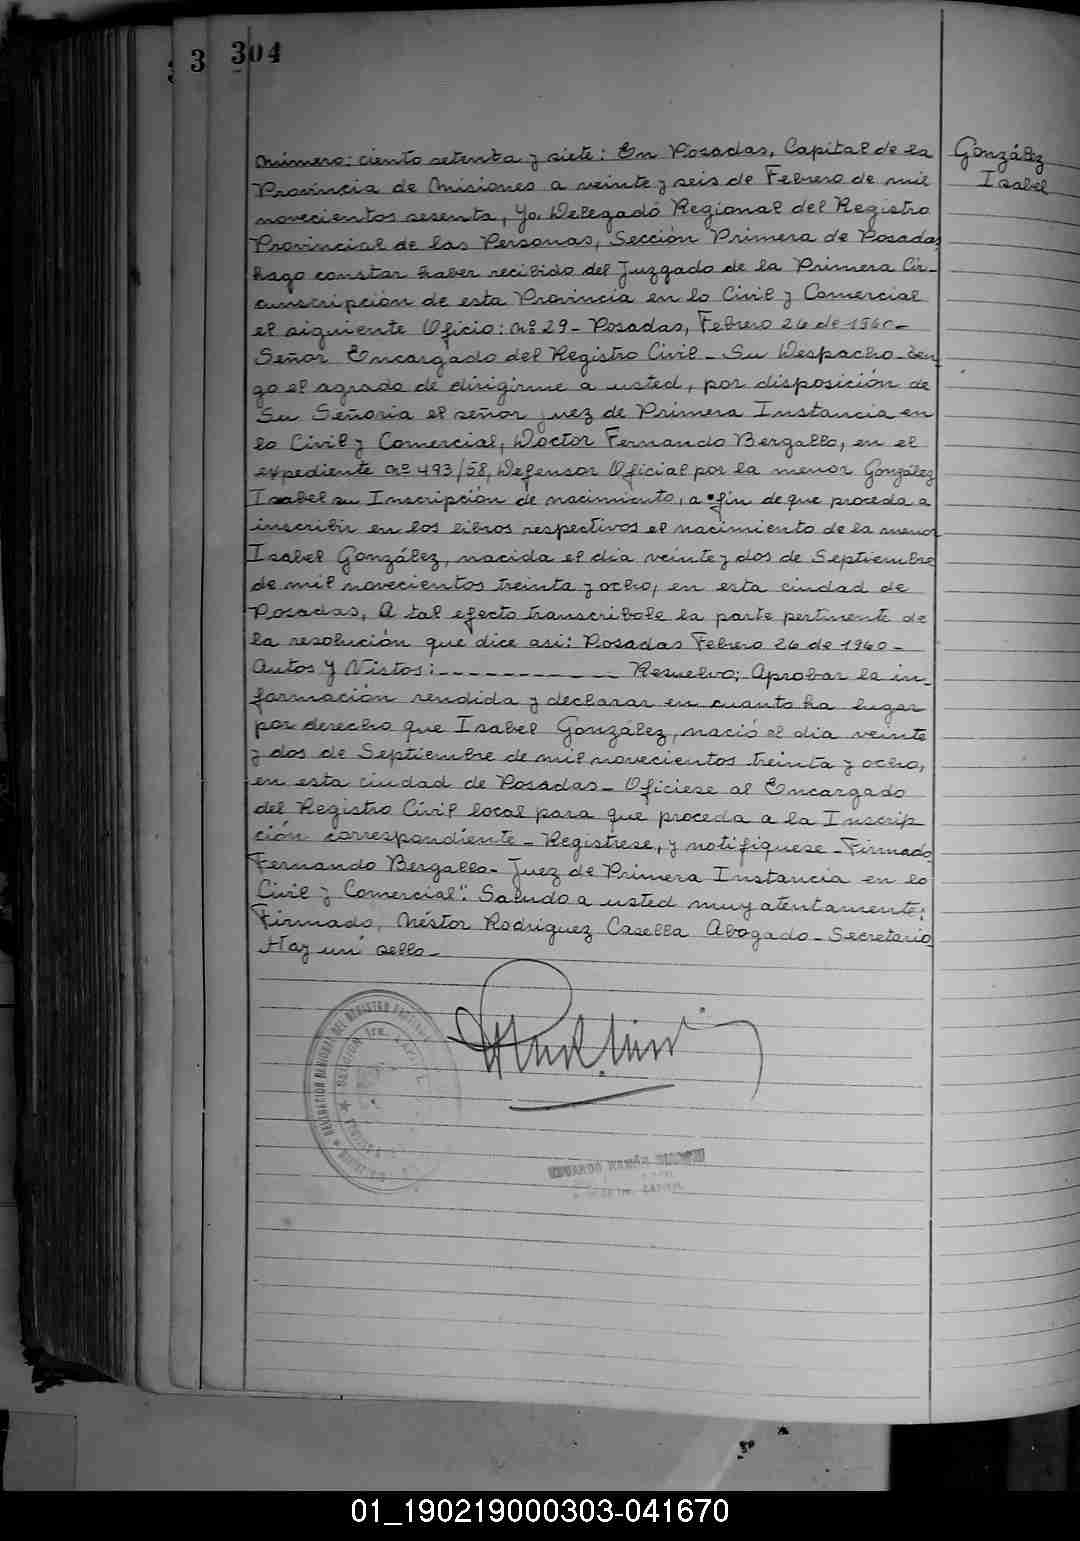 3 304
Número: ciento setenta y siete: En Posadas, Capital de la
Provincia de Misiones a veinte y seis de Febrero de mil
novecientos sesenta, Yo, Delegado Regional del Registro
Provincial de las Personas, Sección Primera de Posadas,
hago constar haber recibido del Juzgado de la Primera Cir-
cunscripción de esta Provincia en lo Civil y Comercial
el siguiente Oficio: Nº 29 - Posadas, Febrero 26 de 1960 -
Señor Encargado del Registro Civil - Su Despacho - Ten
go el agrado de dirigirme a usted, por disposición de
Su Señoria el señor juez de Primera Instancia en
lo Civil y Comercial, Doctor Fernando Bergallo, en el
expediente Nº 493/58, Defensor Oficial por la menor González
Isabel su Inscripción de nacimiento, a fin de que proceda a
inscribir en los libros respectivos el nacimiento de la menor
Isabel González, nacida el día veinte y dos de Septiembre
de mil novecientos treinta y ocho, en esta ciudad de
Posadas, A tal efecto transcribole la parte pertinente de
la resolución que dice asi: Posadas Febrero 26 de 1960 -
Autos y Vistos: - - - - - - - - - - - Resuelvo; Aprobar la in-
formación rendida y declarar en cuanto ha lugar
por derecho que Isabel González, nació el dia veinte
y dos de Septiembre de mil novecientos treinta y ocho,
en esta ciudad de Posadas - Oficiese al Encargado
del Registro Civil local para que proceda a la Inscrip
ción correspondiente - Registrese, y notifiquese - Firmado,
Fernando Bergallo - Juez de Primera Instancia en lo
Civil y Comercial". Saludo a usted muy atentamente:
Firmado, Néstor Rodriguez Casella Abogado - Secretario
Hay un sello -
González
Isabel
DELEGACION REGIONAL DEL REGISTRO
SECCION 1ra.
EDUARDO RAMÓN
01_190219000303-041670